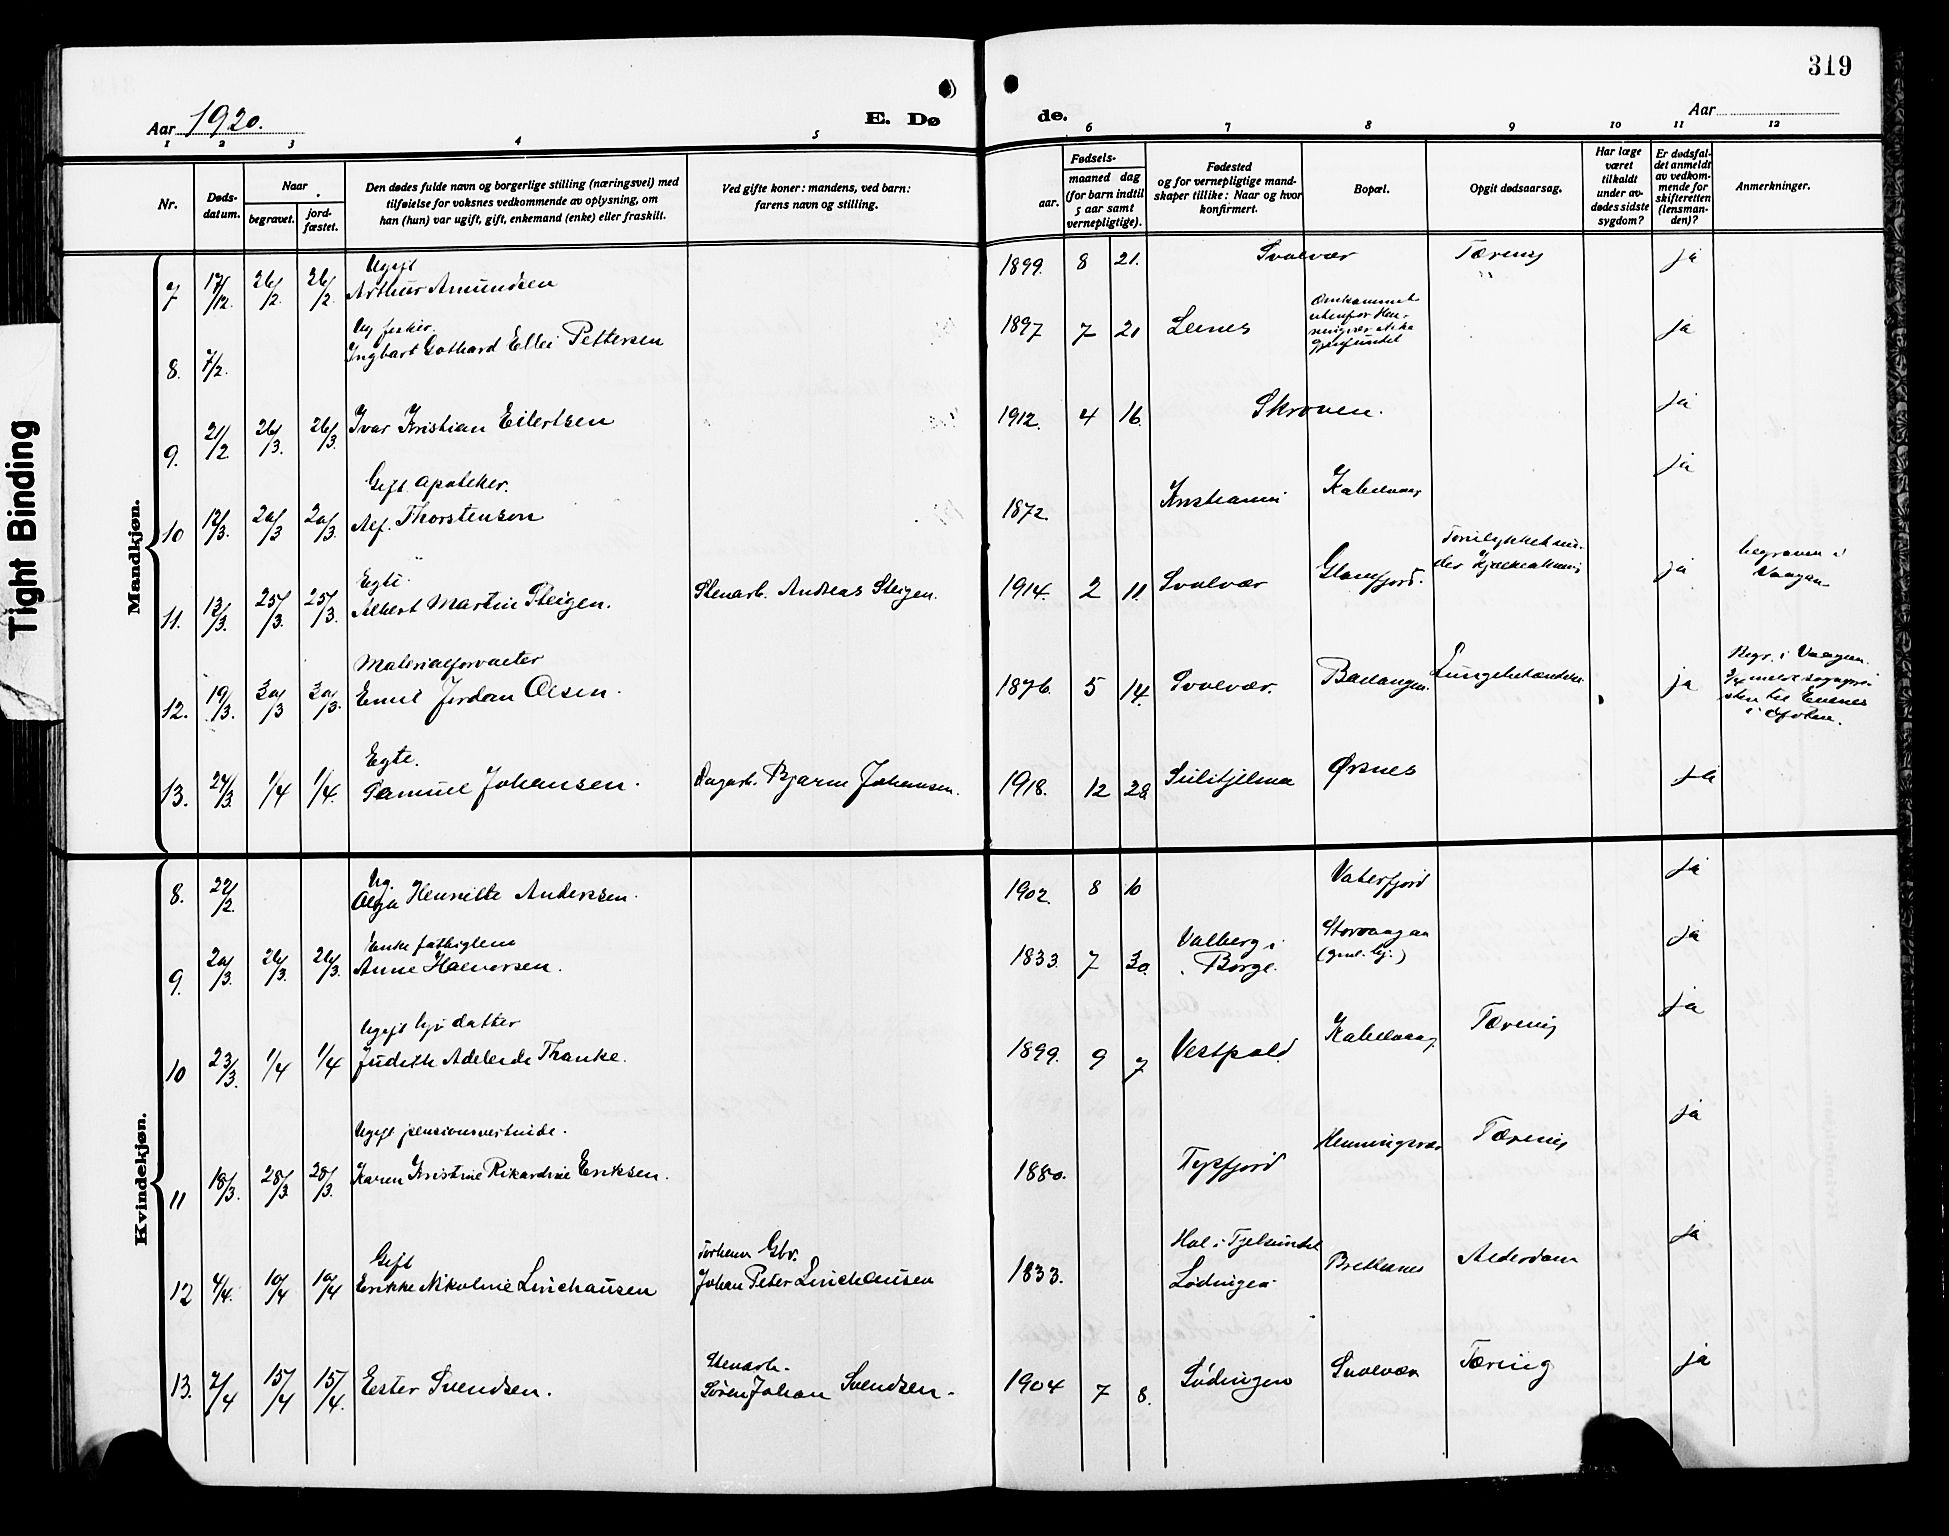 319
Aar 1920.
E. Døde.
Aar
1 2 3 4 5 6 7 8 9 10 11 12
Nr.
Dødsdatum.
Naar
begravet.
jordfæstet.
Den dødes fulde navn og borgerlige stilling (næringsvei) med
tilføielse for voksnes vedkommende av oplysning, om
han (hun) var ugift, gift, enkemand (enke) eller fraskilt.
Ved gifte koner: mandens, ved barn:
farens navn og stilling.
Fødsels-
aar.
maaned dag
(for barn indtil
5 aar samt
vernepligtige).
Fødested
og for vernepligtige mand-
skaper tillike: Naar og hvor
konfirmert.
Bopæl.
Opgit dødsaarsag.
Har læge
været
tilkaldt
under av-
dødes sidste
sygdom?
Er dødsfal-
det anmeldt
av vedkom-
mende for
skifteretten
(lensman-
den)?
Anmerkninger.
Tight Binding
Mandkjøn.
Ugift
7 17/12. 26/2. 26/2. Arthur Amundsen 1899. 8 21. Svolvær Tæring ja
Ug. fisker.
8. 7/2. Ingbart Gothard Ellei Pettersen 1897 7 21 Leines Omkommet
utenfor Hen-
ningsvær ikke
gjenfundet ja
9. 21/2 26/3. 26/3. Ivar Kristian Eilertsen 1912. 4 16. Skroven. ja
Gift. Apoteker.
10 12/3. 20/3 20/3. Alf. Thorstensen 1872. Kristiania Kabelvaag ja
Egte.
11. 13/3. 25/3. 25/3. Albert Martin Steigen. Stenarb. Andreas Steigen. 1914. 2 11. Svolvær Glomfjord. ja begraven i
Vaagan
Materialforvalter
12. 19/3. 30/3 30/3. Emil Jordan Olsen. 1876. 5 14. Svolvær. Ballangen. Lungebetændelse ja Begr. i Vaagan.
Egte.
13. 24/3. 1/4 1/4. Samuel Johansen. Dagarb. Bjarne Johansen. 1918. 12 28. Sulitjelma Ørsnes ja
Kvindekjøn.
Ug.
8. 22/2. Olga Henriette Andersen. 1902. 8 10 Vaterfjord ja
Enke fattiglem
9. 20/3. 26/3. 26/3. Anne Halvorsen. 1833. 7 30. Valberg i
Borge. Storvaagan
ja
Ugift datter
10 23/3. 1/4 1/4 Judith Adeleide Thanke. 1899. 9 7 Vestpold Kabelvaag Tæring ja
Ugift pensionsvertinde.
11 18/3. 28/3. 28/3. Karen Kristine Rikardine Eriksen. 1880. Tysfjord Henningsvær Tæring ja
Gift
12 4/4. 10/4 10/4 Erikke Nikoline Linchausen Gbr.
Johan Peter Linchausen 1833. Hol i Tjelsundet
Lødingen Brettesnes Alderdom ja
Stenarb.
13. 7/4 15/4 15/4. Ester Svendsen. Søren Johan Svendsen. 1904 7 8. Lødingen Svolvær Tæring ja